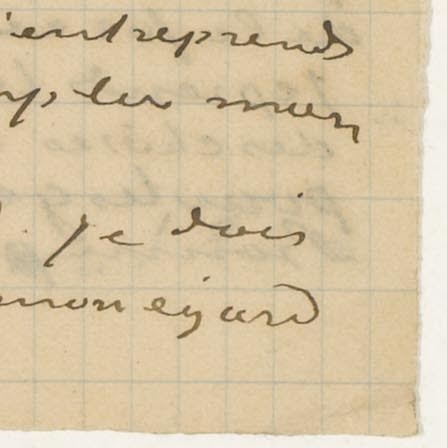 'entreprends
mon
. je dois
mon égard